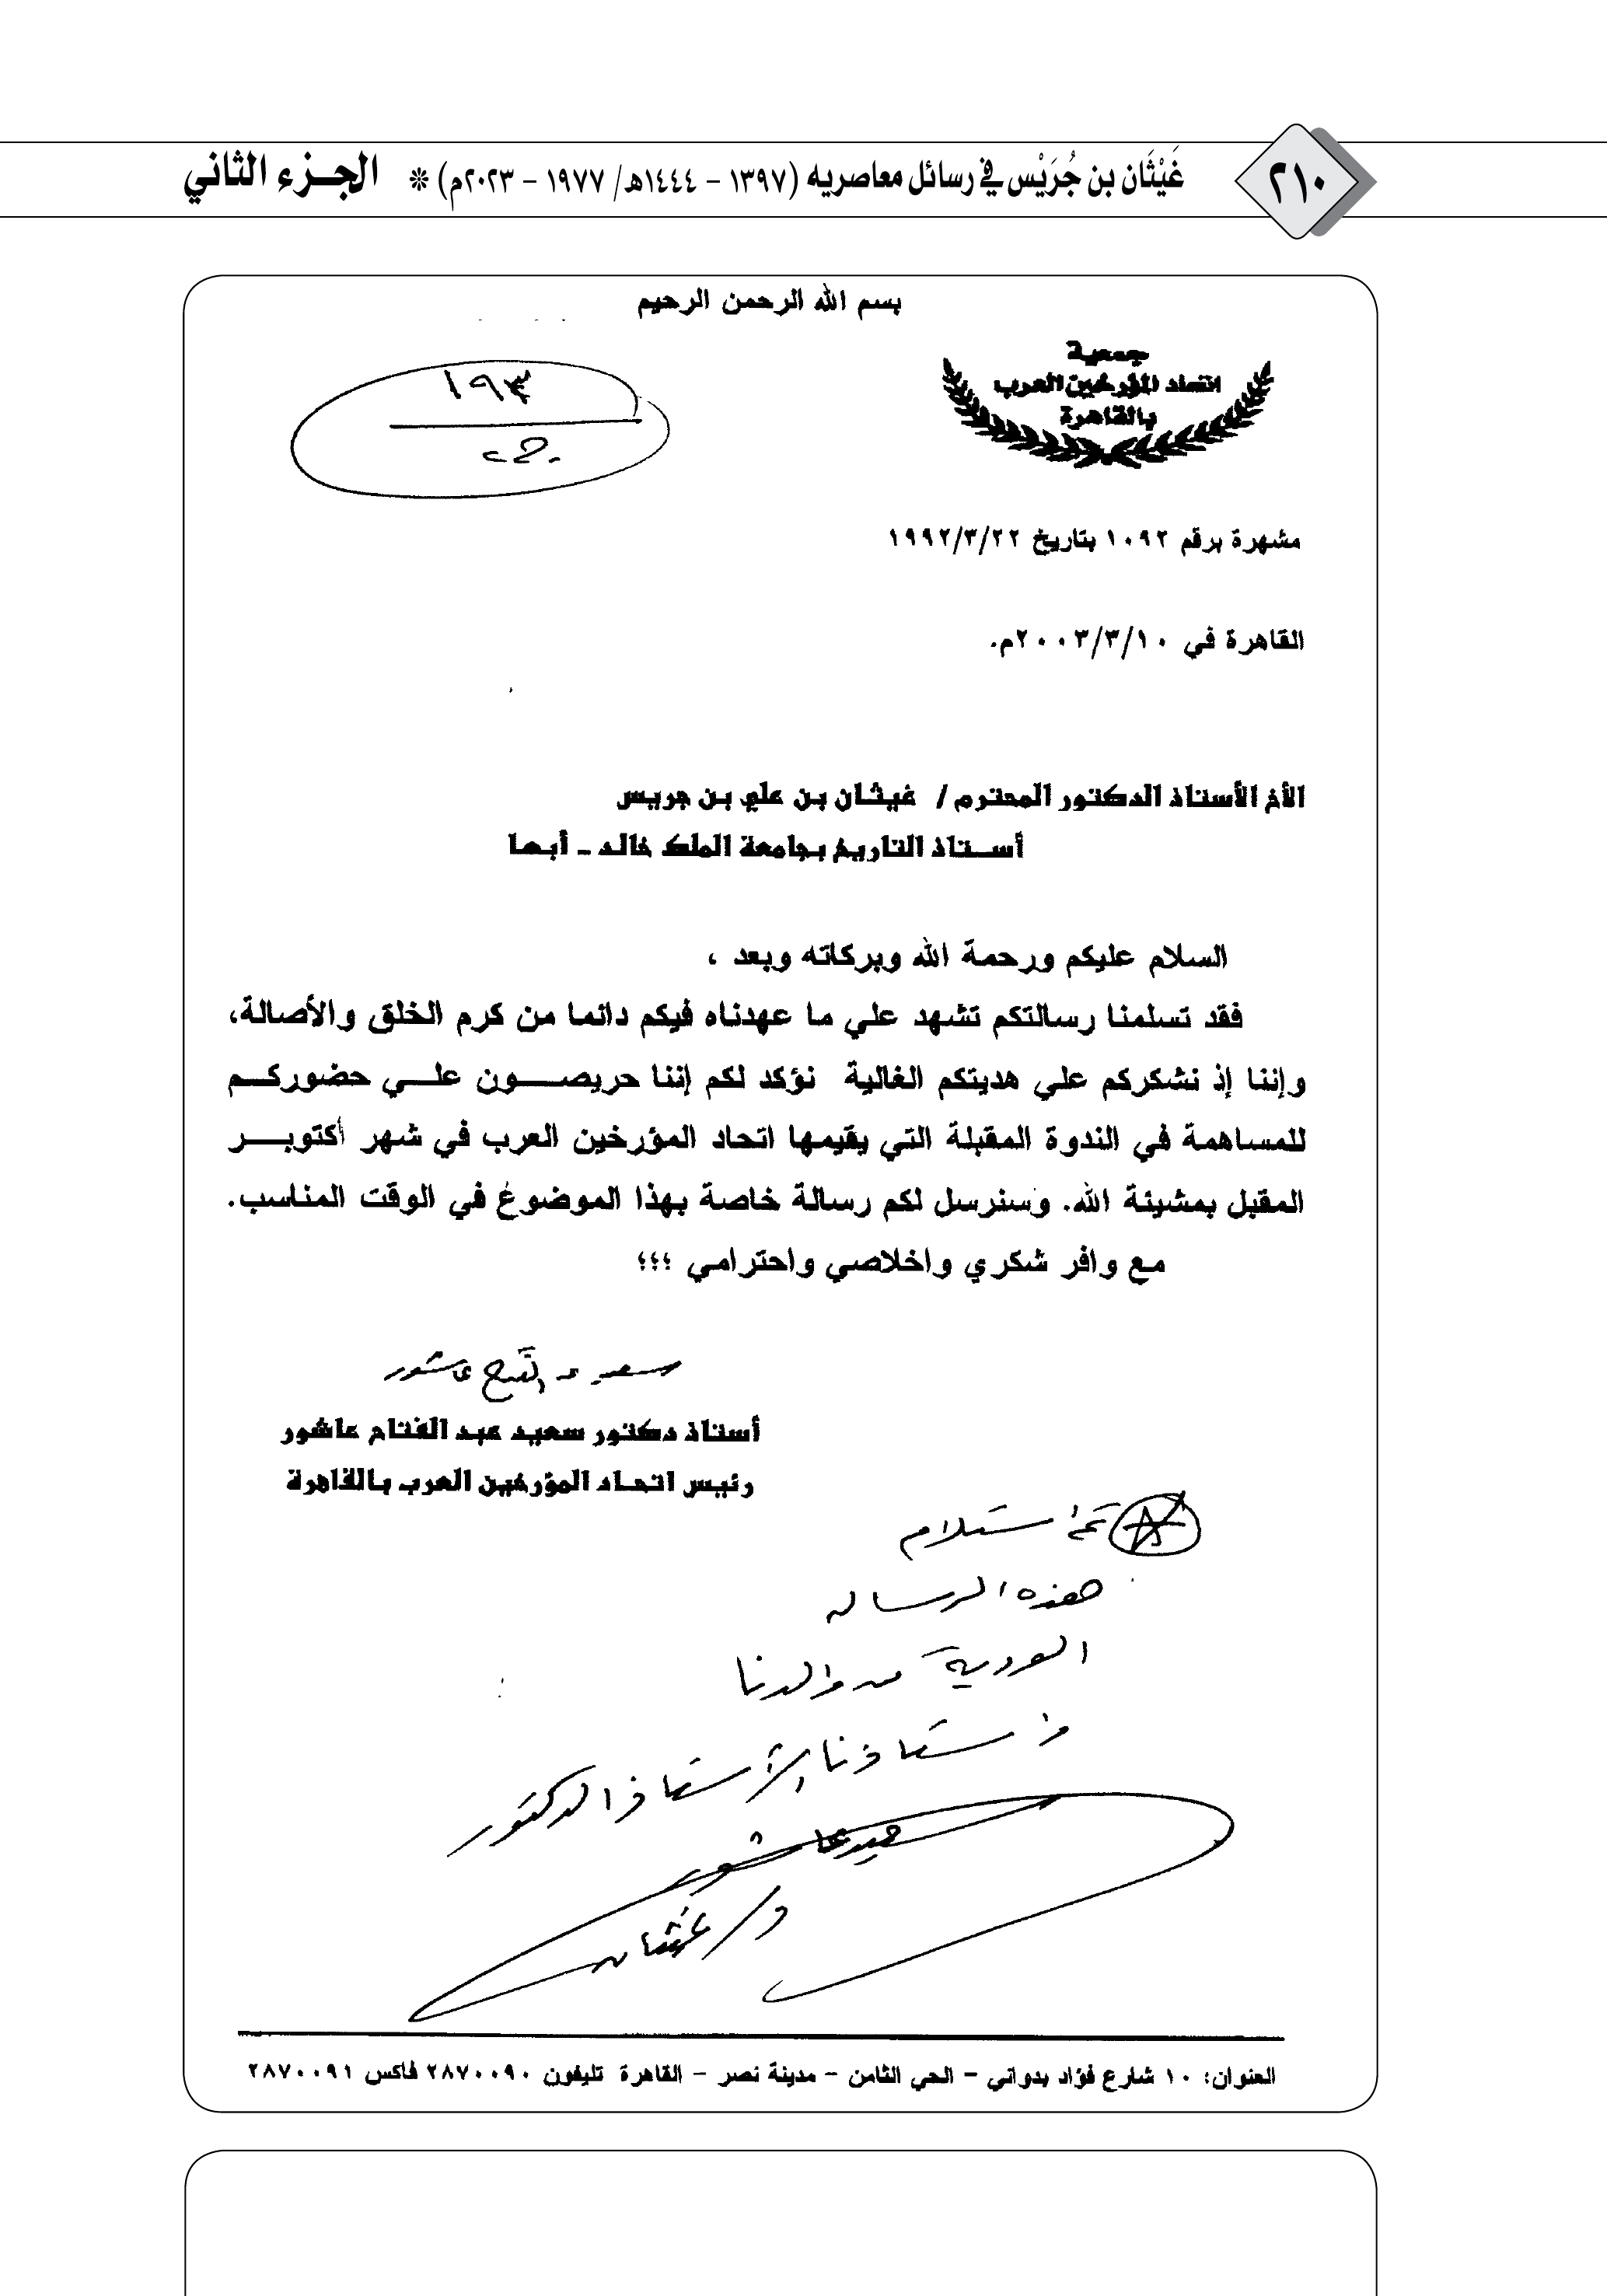 ٢١٠
غَيْثَان بن جُرَيْس في رسائل معاصريه (١٣٩٧ - ١٤٤٤هـ/ ١٩٧٧ - ٢٠٢٣م) ❊ الجـزء الثاني
بسم الله الرحمن الرحيم
جمعية
اتحاد المؤرخين العرب
بالقاهرة
١٩٣
مشهرة برقم ١٠٩٢ بتاريخ ١٩٩٢/٣/٢٢
القاهرة في ٢٠٠٣/٣/١٠م.
الأخ الأستاذ الدكتور المحترم / غيثان بن علي بن جريس
أستاذ التاريخ بجامعة الملك خالد - أبها
السلام عليكم ورحمة الله وبركاته وبعد ،
فقد تسلمنا رسالتكم تشهد علي ما عهدناه فيكم دائما من كرم الخلق والأصالة،
وإننا إذ نشكركم علي هديتكم الغالية نؤكد لكم إننا حريصون علي حضوركم
للمساهمة في الندوة المقبلة التي يقيمها اتحاد المؤرخين العرب في شهر أكتوبر
المقبل بمشيئة الله. وسنرسل لكم رسالة خاصة بهذا الموضوع في الوقت المناسب.
مع وافر شكري واخلاصي واحترامي ؛؛؛
سعيد عبد الفتاح عاشور
أستاذ دكتور سعيد عبد الفتاح عاشور
رئيس اتحاد المؤرخين العرب بالقاهرة
تم استلام
هذه الرساله
من والدنا
واستاذنا الأستاذ الدكتور
سعيد عاشور
د/ غيثان
العنوان: ١٠ شارع فؤاد بدواني - الحي الثامن - مدينة نصر - القاهرة تليفون ٢٨٧٠٠٩٠ فاكس ٢٨٧٠٠٩١